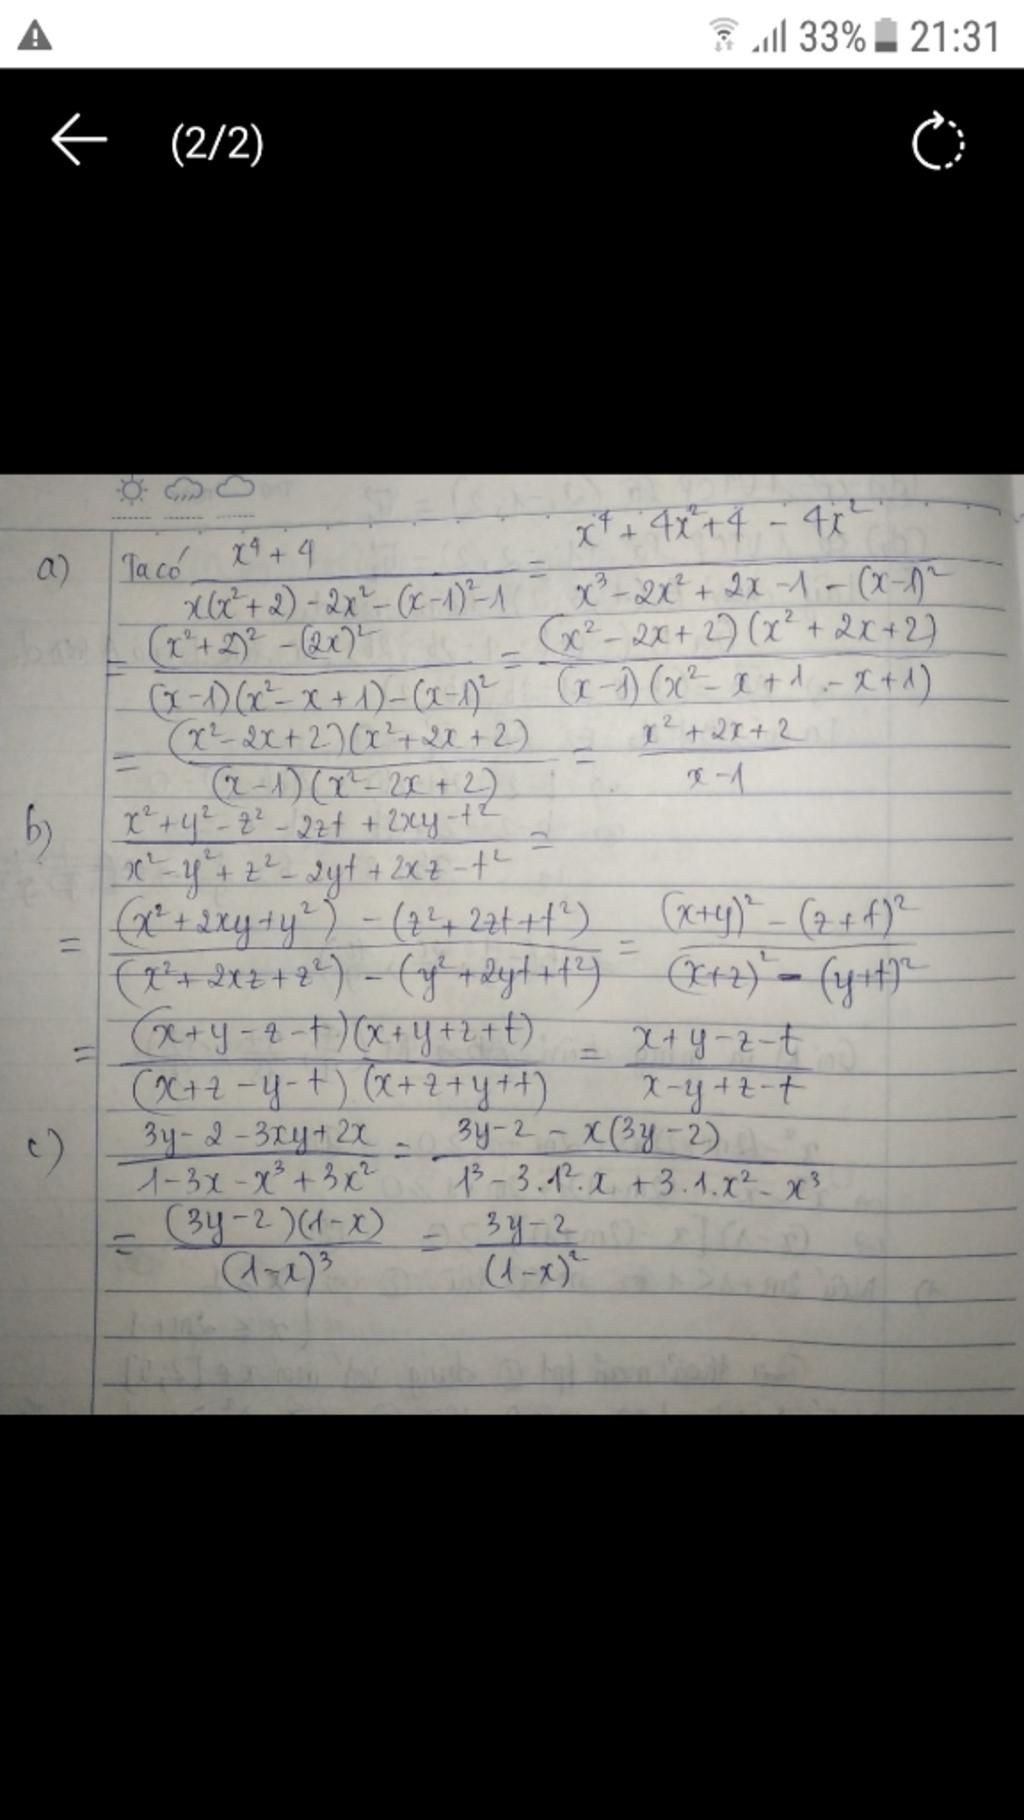 33% 21:31
(2/2)
a) Ta có (x⁴ + 4)/(x(x²+2) - 2x² - (x-1)² - 1) = (x⁴ + 4x² + 4 - 4x²)/(x³ - 2x² + 2x - 1 - (x-1)²)
= ((x²+2)² - (2x)²)/((x-1)(x² - x + 1) - (x-1)²) = ((x² - 2x + 2)(x² + 2x + 2))/((x-1)(x² - x + 1 - x + 1))
= ((x² - 2x + 2)(x² + 2x + 2))/((x-1)(x² - 2x + 2)) = (x² + 2x + 2)/(x-1)
b) (x² + y² - z² - 2zt + 2xy - t²)/(x² - y² + z² - 2yt + 2xz - t²) =
= ((x² + 2xy + y²) - (z² + 2zt + t²))/((x² + 2xz + z²) - (y² + 2yt + t²)) = ((x+y)² - (z+t)²)/((x+z)² - (y+t)²)
= ((x+y-z-t)(x+y+z+t))/((x+z-y-t)(x+z+y+t)) = (x+y-z-t)/(x-y+z-t)
c) (3y - 2 - 3xy + 2x)/(1 - 3x - x³ + 3x²) = (3y - 2 - x(3y-2))/(1³ - 3.1².x + 3.1.x² - x³)
= ((3y-2)(1-x))/((1-x)³) = (3y-2)/((1-x)²)